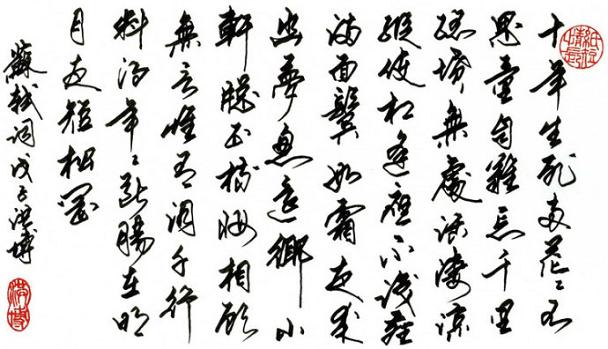 紙短情長
十年生死兩茫〻不
思量自難忘千里
孤墳無處話淒涼
縱使相逢應不識塵
滿面鬢如霜夜來
幽夢忽還鄉小
軒窗正梳妝相顧
無言惟有淚千行
料得年〻斷腸在明
月夜短松岡
蘇軾詞戊子洪博
洪博